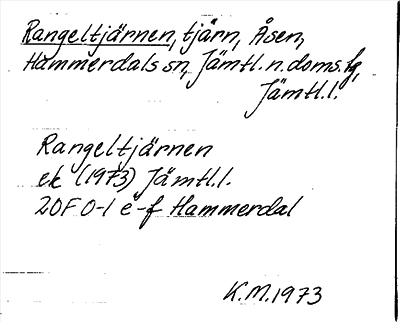 Rangeltjärnen, tjärn, Åsen,
Hammerdals sn, Jämtl. n. doms. fg,
Jämtl. l.
Rangeltjärnen
ek (1973) Jämtl. l.
20F 0-1 e-f Hammerdal
K.M. 1973